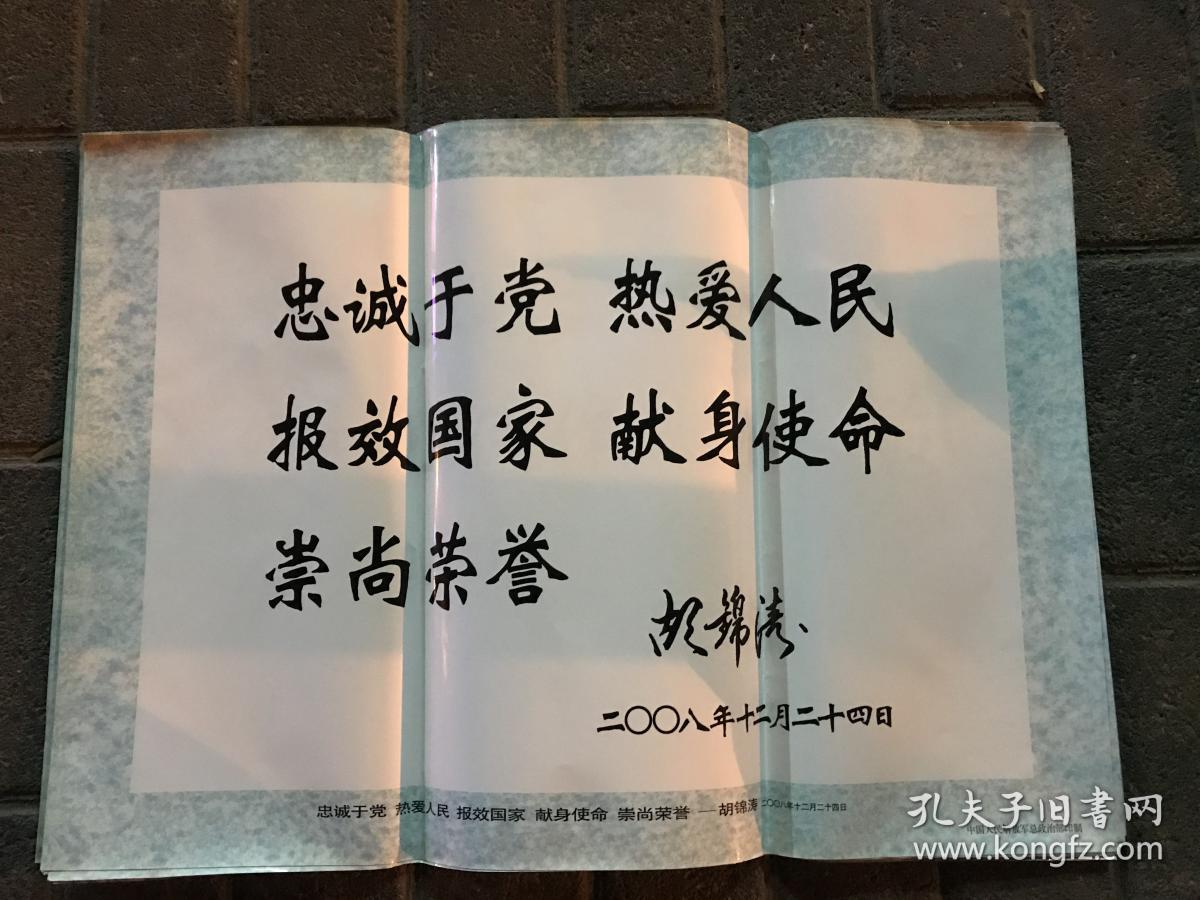 忠诚于党 热爱人民
报效国家 献身使命
崇尚荣誉
胡锦涛
二〇〇八年十二月二十四日
忠诚于党 热爱人民 报效国家 献身使命 崇尚荣誉 —胡锦涛 二〇〇八年十二月二十四日
中国人民解放军总政治部印制
孔夫子旧书网
www.kongfz.com